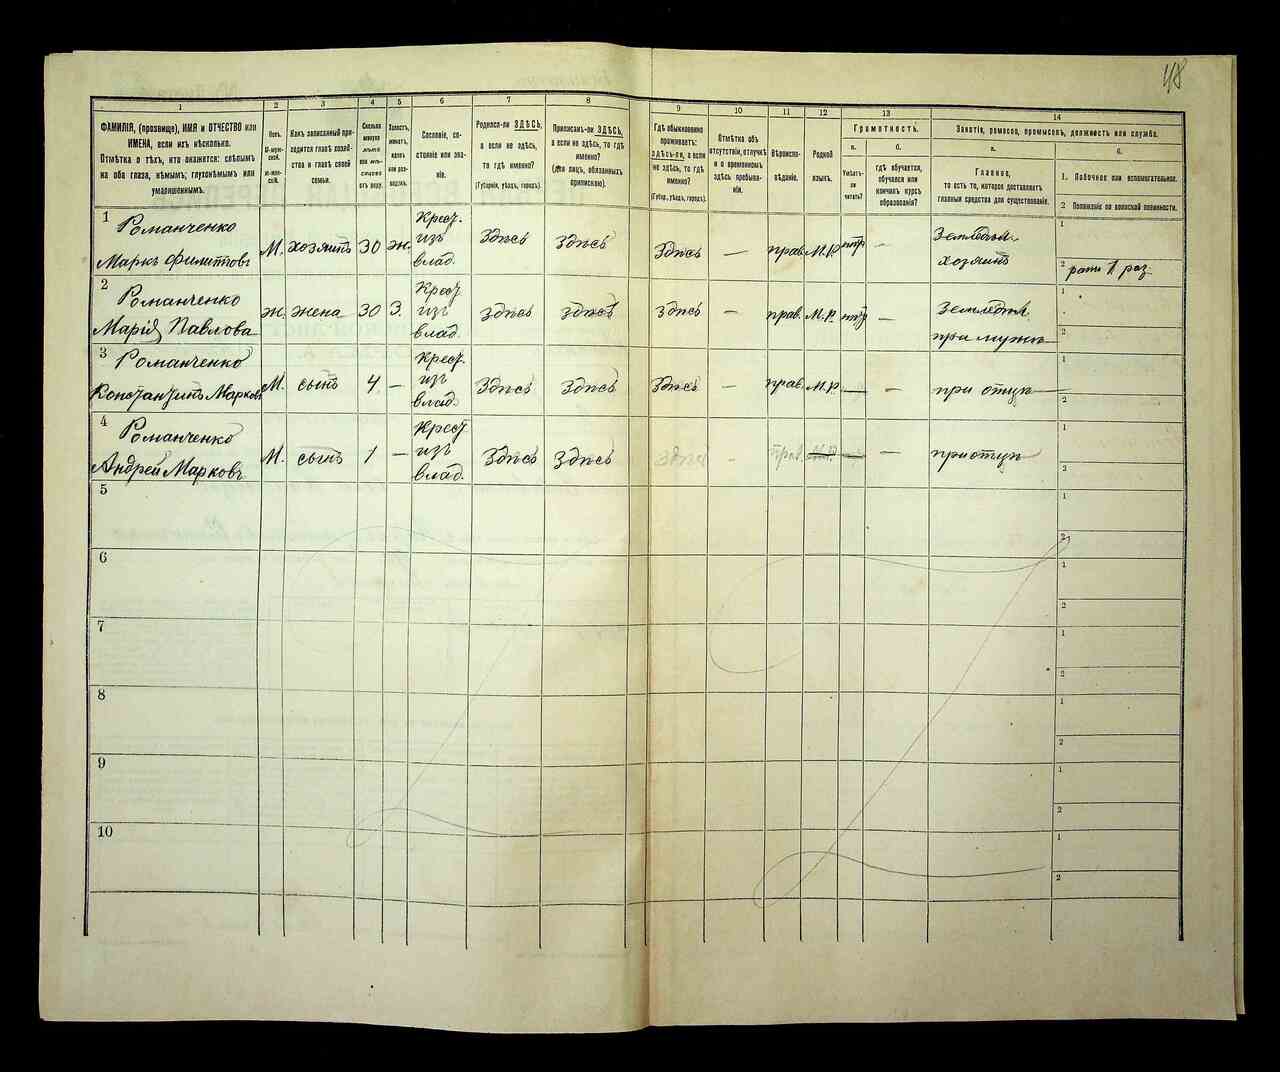 48
1
2
3
4
5
6
7
8
9
10
11
12
13
14
ФАМИЛІЯ, (прозвище), ИМЯ и ОТЧЕСТВО или
ИМЕНА, если ихъ нѣсколько.
Отмѣтка о тѣхъ, кто окажется: слѣпымъ
на оба глаза, нѣмымъ, глухонѣмымъ или
умалишеннымъ.
Полъ.
М-муж-
ской.
Ж-жен-
скій.
Какъ записанный при-
ходится главѣ хозяй-
ства и главѣ своей
семьи.
Сколько
минуло
лѣтъ
или мѣ-
сяцевъ
отъ роду.
Холостъ,
женатъ,
вдовъ
или раз-
веденъ.
Сословіе, со-
стояніе или зва-
ніе.
Родился-ли ЗДѢСЬ,
а если не здѣсь,
то гдѣ именно?
(Губернія, уѣздъ, городъ).
Приписанъ-ли ЗДѢСЬ,
а если не здѣсь, то гдѣ
именно?
(для лицъ, обязанныхъ
припискою).
Гдѣ обыкновенно
проживаетъ:
здѣсь-ли, а если
не здѣсь, то гдѣ
именно?
(Губер., уѣздъ, городъ).
Отмѣтка объ
отсутствіи, отлучкѣ
и о временномъ
здѣсь пребыва-
ніи.
Вѣроиспо-
вѣданіе.
Родной
языкъ.
Грамотность.
а.
Умѣетъ-
ли
читать?
б.
гдѣ обучается,
обучался или
кончилъ курсъ
образованія?
Занятіе, ремесло, промыселъ, должность или служба.
а.
Главное,
то есть то, которое доставляетъ
главныя средства для существованія.
б.
1. Побочное или вспомогательное.
2 Положеніе по воинской повинности.
1
Романченко
Маркъ Филиповъ
М.
хозяинъ
30
ж.
Крест.
изъ
влад.
Здѣсь
Здѣсь
Здѣсь
—
прав.
М.Р.
—
Земледѣл.
хозяинъ
1
2
рат. 1 раз.
2
Романченко
Марія Павлова
ж.
жена
30
З.
Крест.
изъ
влад.
здѣсь
здѣсь
здѣсь
—
прав.
М.Р.
—
Земледѣл.
при мужѣ
1
2
3
Романченко
Константинъ Марковъ
М.
сынъ
4
—
Крест.
изъ
влад.
Здѣсь
Здѣсь
Здѣсь
—
прав.
М.Р.
—
—
при отцѣ
1
2
4
Романченко
Андрей Марковъ
М.
сынъ
1
—
Крест.
изъ
влад.
Здѣсь
Здѣсь
Здѣсь
—
прав.
М.Р.
—
—
при отцѣ
1
2
5
1
2
6
1
2
7
1
2
8
1
2
9
1
2
10
1
2